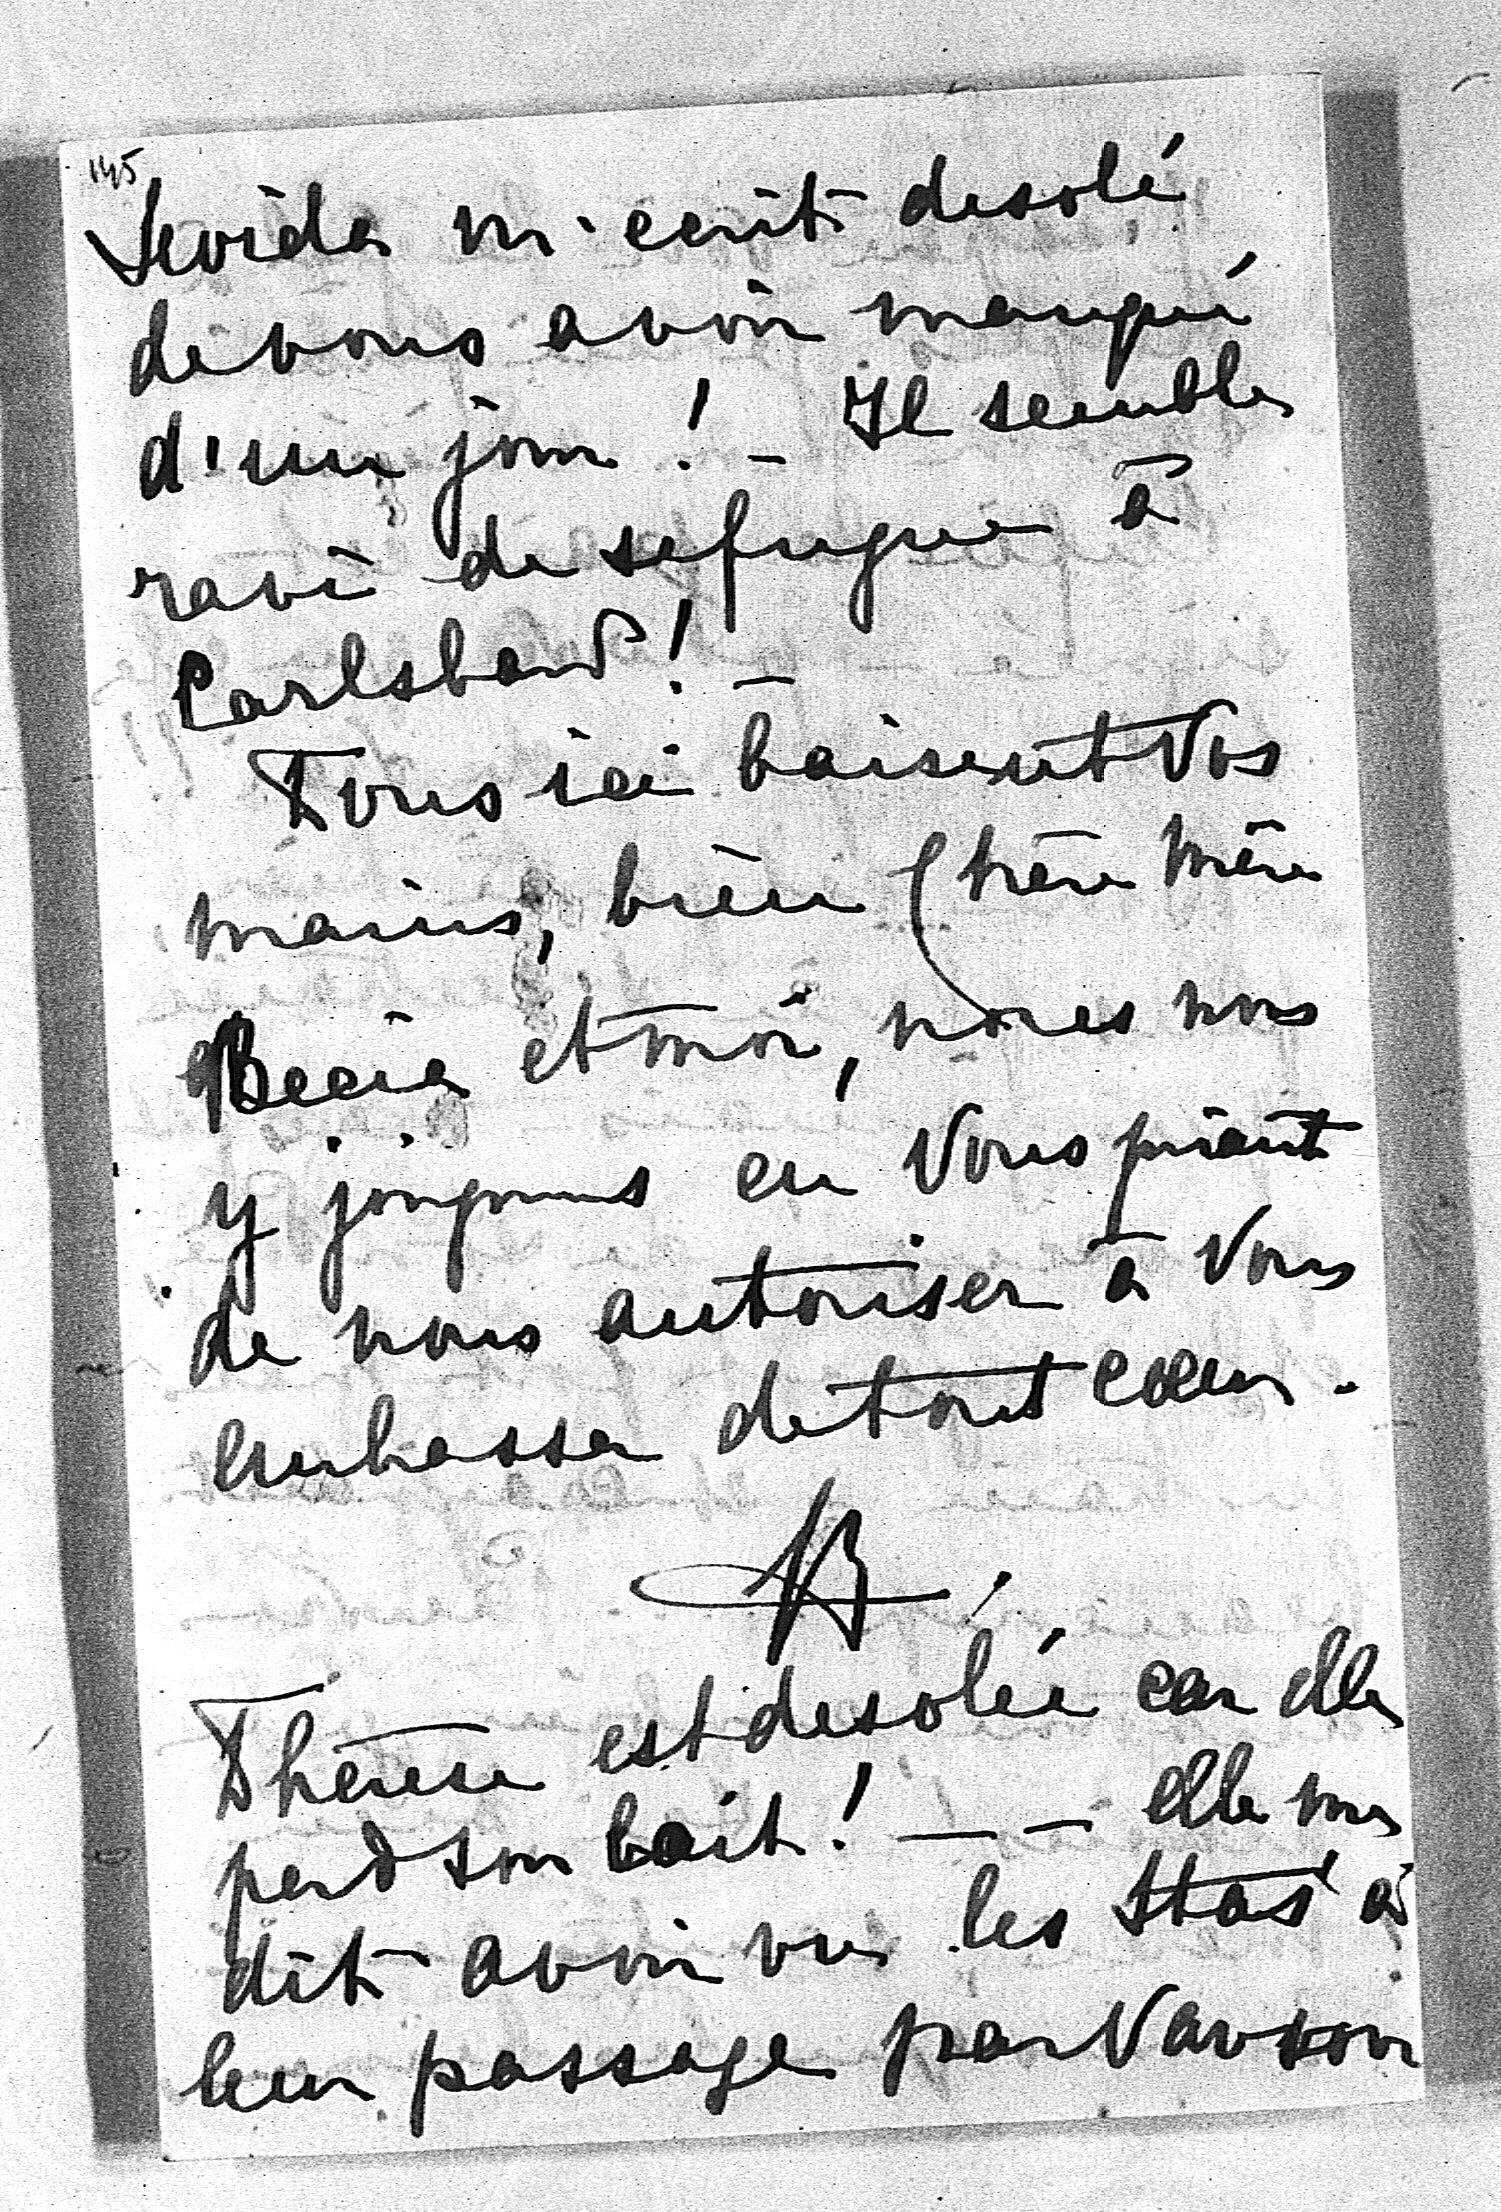 145
m'ecrit desolé
de vous avoir manqué
d'un jour ! _ Il semble
ravi de sa fugue à
Carlsbad ! _
Tous ici baisent Vos
mains, bien chère Mère
et moi, nous nous
y joignons en Vous priant
de nous autoriser à Vous
embrasser de tout coeur .
Thérèse est desolée car elle
perd son lait ! _ _ elle me
dit avoir vu les Stas à
leur passage par Varsovie